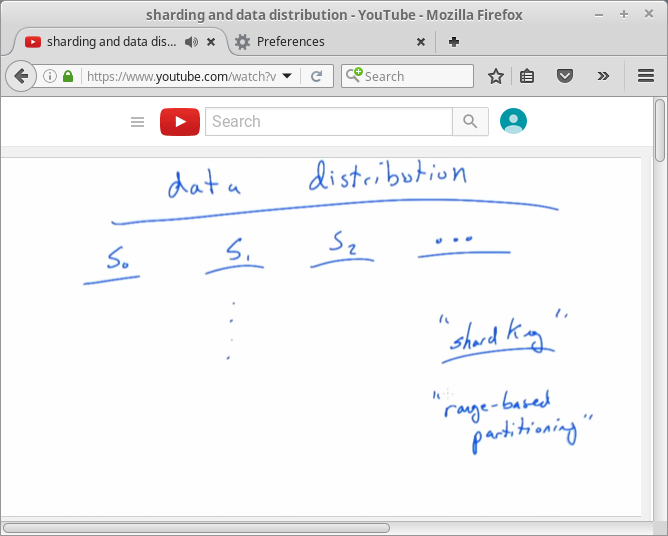 sharding and data distribution - YouTube - Mozilla Firefox
sharding and data dis...
Preferences
https://www.youtube.com/watch?v
Search
Search
data distribution
S0 S1 S2 ...
"shard key"
"range-based
partitioning"